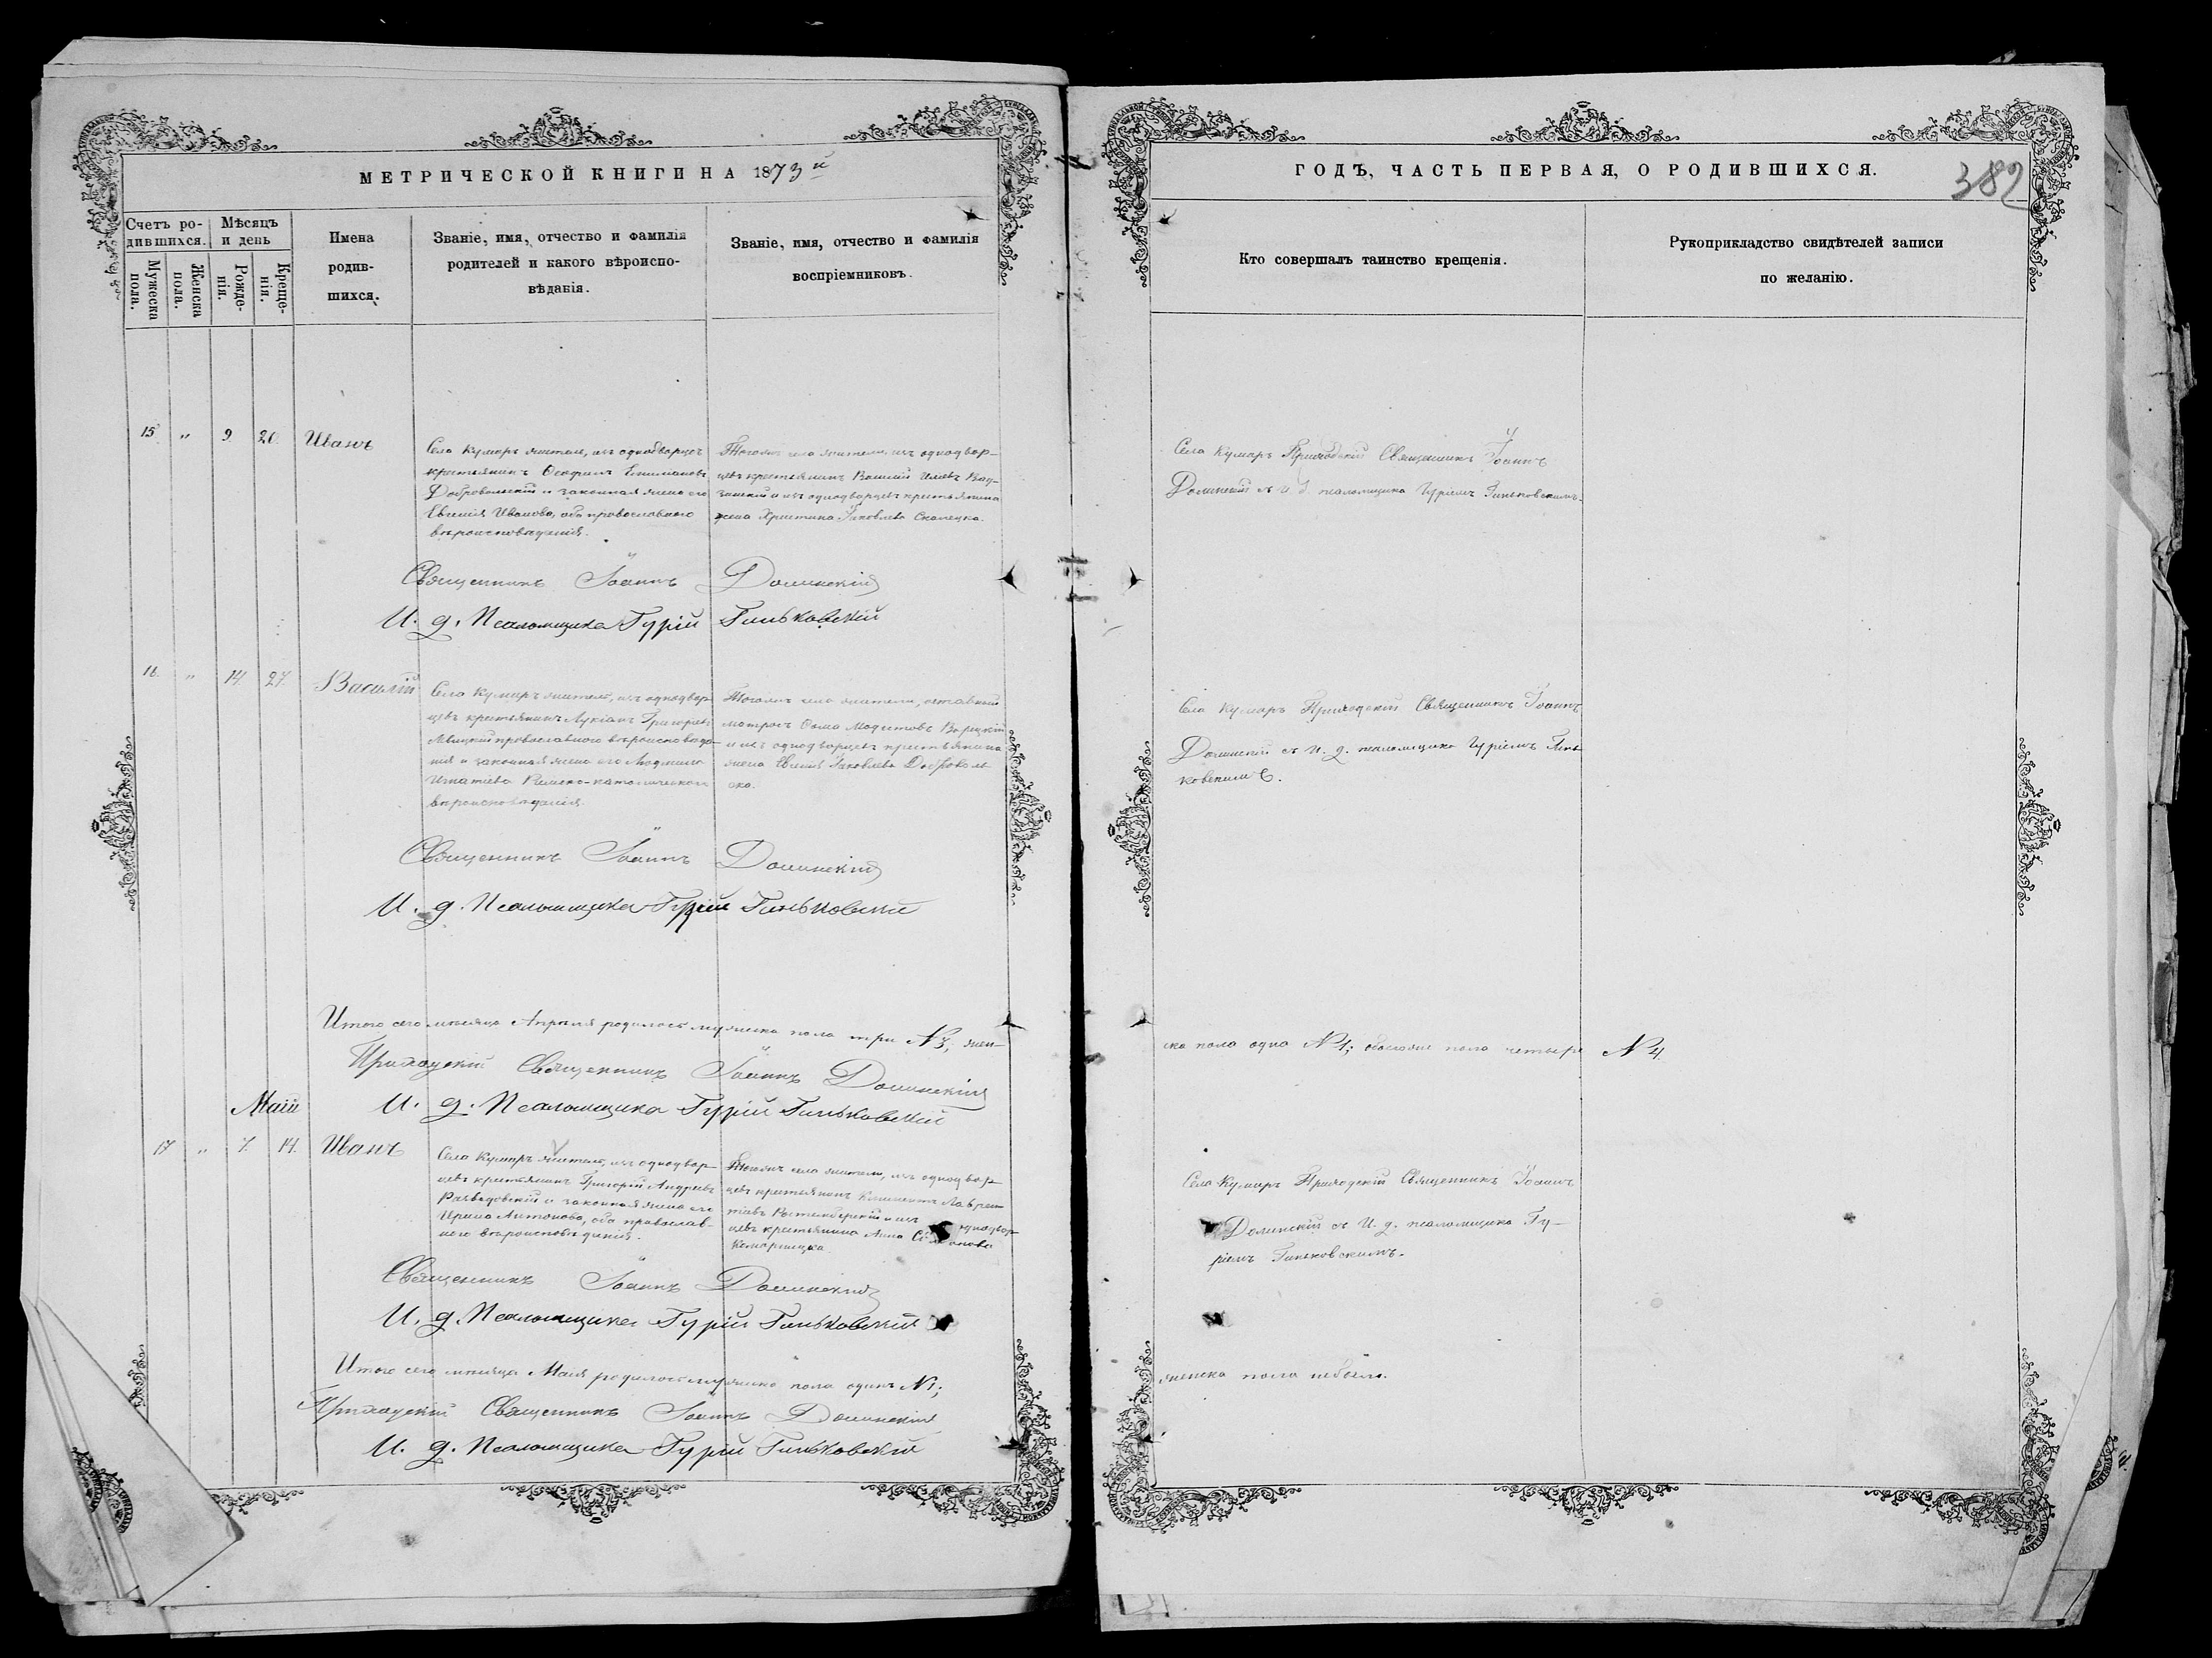 МЕТРИЧЕСКОЙ КНИГИ НА 1873й
Счетъ родившихся.
Мѣсяцъ и день
Мужеска пола.
Женска пола.
Рожденія.
Крещенія.
Имена
родив-
шихся.
Званіе, имя, отчество и фамилія
родителей и какого вѣроиспо-
вѣданія.
Званіе, имя, отчество и фамилія
воспріемниковъ.
15 " 9 20. Иванъ
Села Кумаръ житель, изъ однодворцевъ
крестьянинъ Ѳеофилъ
Добровольскій и законная жена его
Евгенія Иванова, оба православного
вѣроисповѣданія.
Тогожъ села жители, изъ однодвор-
цевъ крестьянинъ
и изъ однодворцевъ крестьянина
жена Христина Яковлева
Священникъ Іоаннъ Долинскій
И. д. Псаломщика Гурій Гиньковскій
16. " 14. 27. Василій
Села Кумаръ житель, изъ однодвор-
цевъ крестьянинъ Лукіанъ Григорьевъ
православного вѣроисповѣда-
нія и законная жена его Людмила
Игнатіева Римско-католического
вѣроисповѣданія.
Тогожъ села жители, отставный
матросъ Ѳома Модестовъ
и изъ однодворцевъ крестьянина
жена Евгенія Яковлева Доброволь
ска.
Священникъ Іоаннъ Долинскій
И. д. Псаломщика Гурій Гиньковскій
Итого сего мѣсяца Апрѣля родилось мужеска пола три №3; жен-
Приходскій Священникъ Іоаннъ Долинскій
И. д. Псаломщика Гурій Гиньковскій
Маій
17 " 7. 14. Иванъ
Села Кумаръ житель, изъ однодвор-
цевъ крестьянинъ Григорій Андреевъ
и законная жена его
Ирина Антонова, оба православ-
ного вѣроисповѣданія.
Тогожъ села жители, изъ однодвор-
цевъ крестьянинъ Климентъ Лаврен-
тіевъ и изъ однодвор-
цевъ крестьянина Анна
Священникъ Іоаннъ Долинскій
И. д. Псаломщика Гурій Гиньковскій
Итого сего мѣсяца Маія родилось мужеска пола одинъ №1;
Приходскій Священникъ Іоаннъ Долинскій
И. д. Псаломщика Гурій Гиньковскій
ГОДЪ, ЧАСТЬ ПЕРВАЯ, О РОДИВШИХСЯ.
382
Кто совершалъ таинство крещенія.
Рукоприкладство свидѣтелей записи
по желанію.
Села Кумаръ Приходскій Священникъ Іоаннъ
Долинскій съ И. д. псаломщика Гуріемъ Гиньковскимъ.
Села Кумаръ Приходскій Священникъ Іоаннъ
Долинскій съ И. д. псаломщика Гуріемъ Гинь-
ковскимъ.
ска пола одна №1; обоего пола четыре №4.
Села Кумаръ Приходскій Священникъ Іоаннъ
Долинскій съ И. д. псаломщика Гу-
ріемъ Гиньковскимъ.
женска пола небыло.